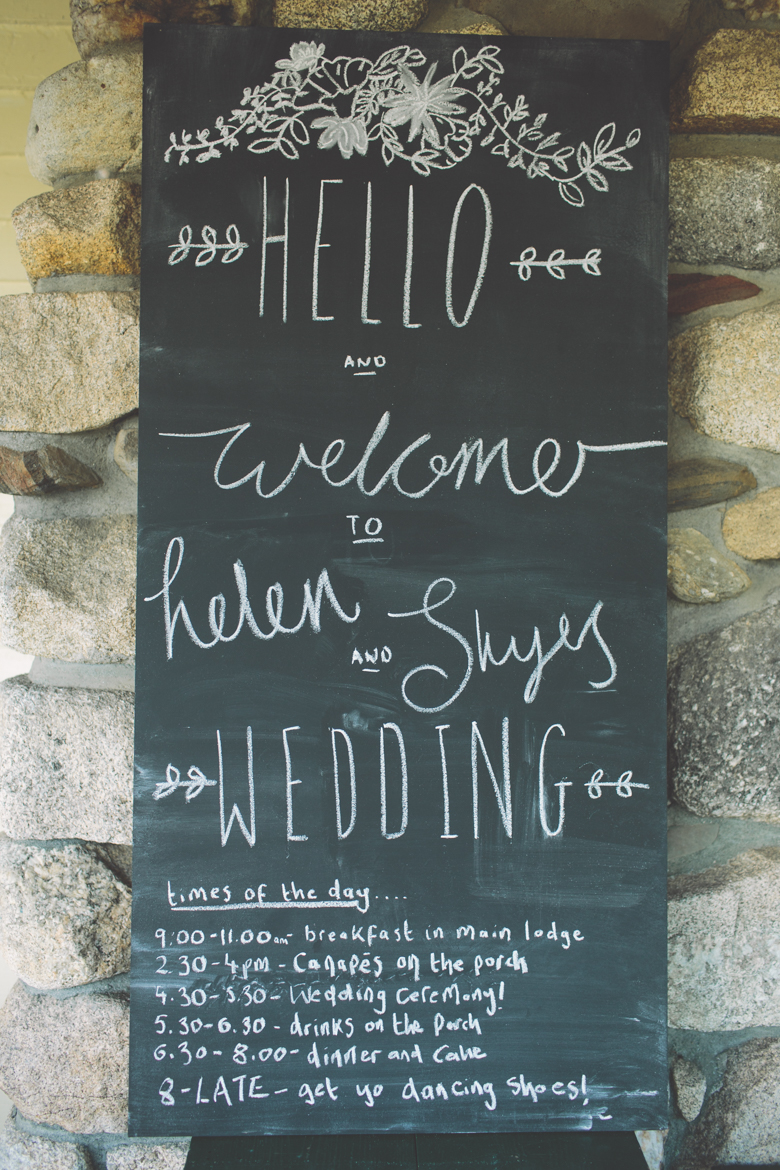 HELLO
AND
welcome
TO
helen
AND Skyes
WEDDING
times of the day....
9:00-11.00am- breakfast in main lodge
2.30-4pm - Canapés on the porch
4.30-5.30- Wedding Ceremony!
5.30-6.30 - drinks on the Porch
6.30 - 8.00- dinner and Cake
8-LATE- get yo dancing shoes!